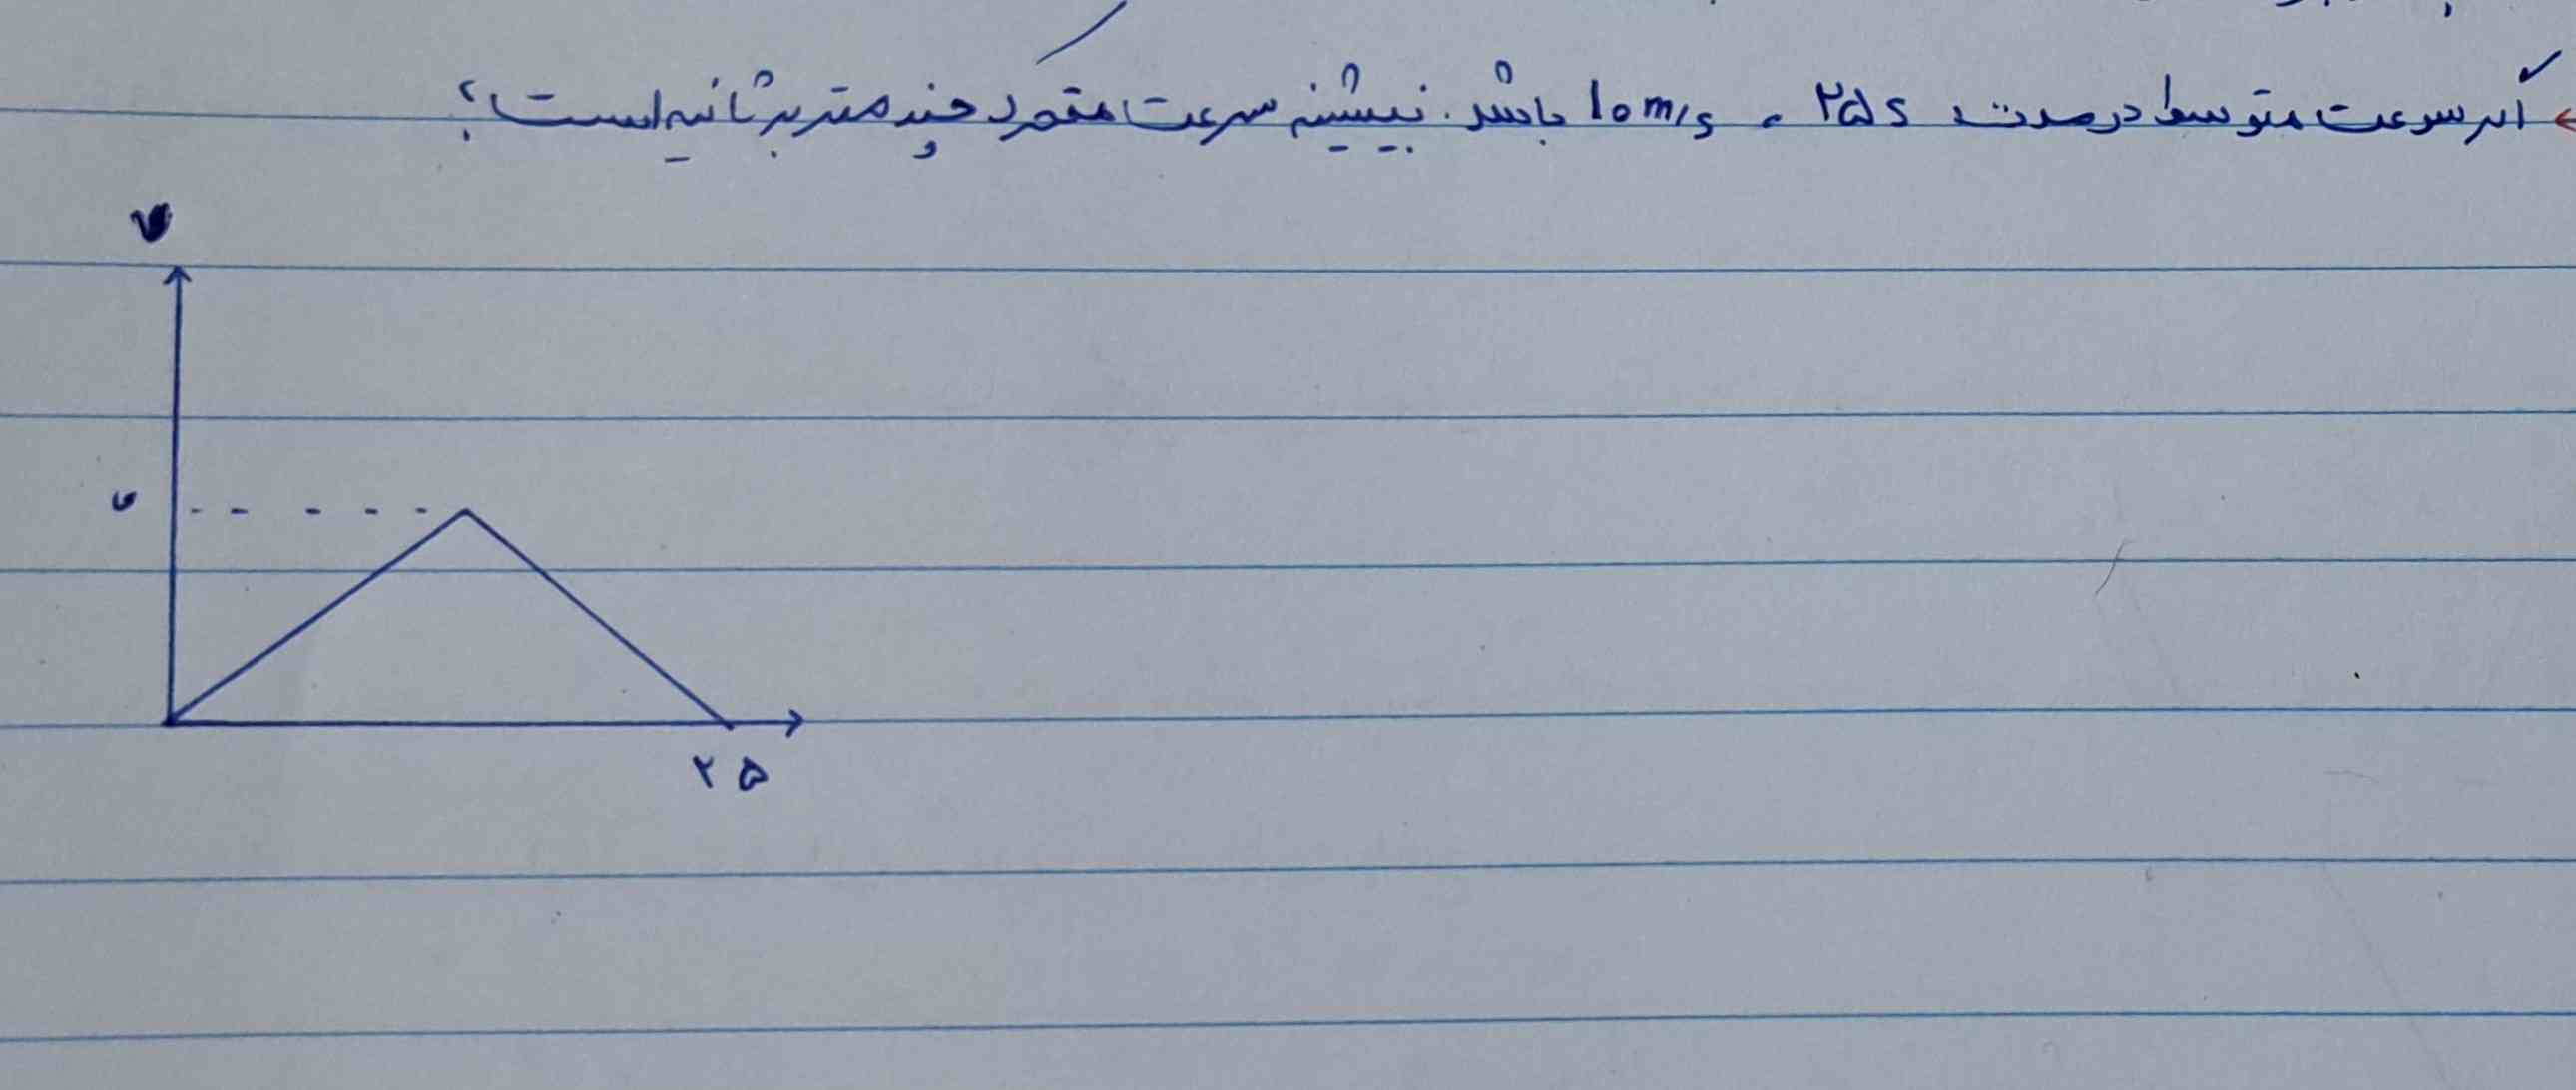 اگر سرعت متوسط در مدت ۲۵s ، 10m/s باشد. بیشینه سرعت متحرک چند متر بر ثانیه است؟
v
v
۲۵